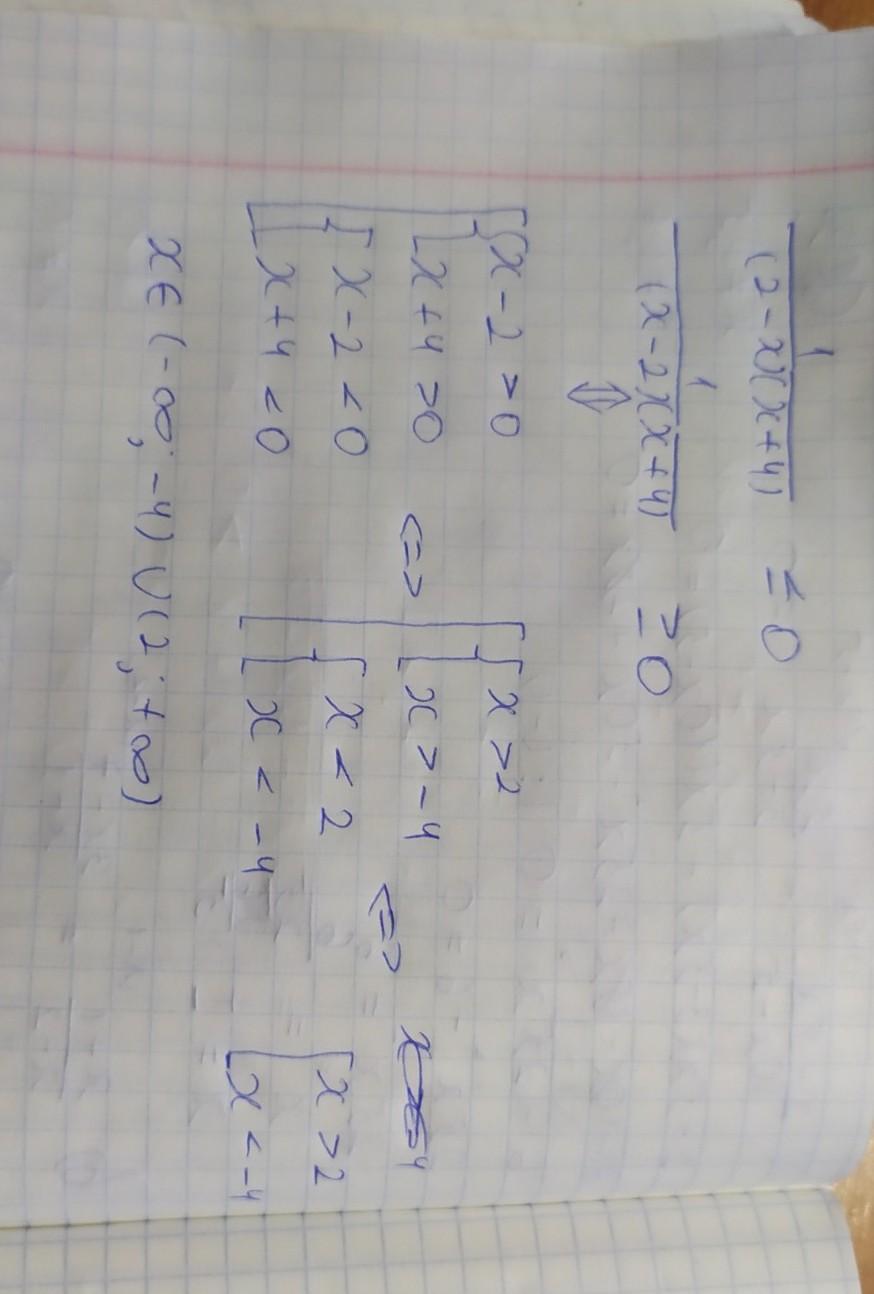 1/((2-x)(x+4)) ≤ 0
1/((x-2)(x+4)) ≥ 0
⇕
[ { x-2>0 x+4>0 { x-2<0 x+4<0 <=> [ { x>2 x>-4 { x<2 x<-4 <=> [ x>2 x<-4
x∈(-∞; -4)∪(2; +∞)